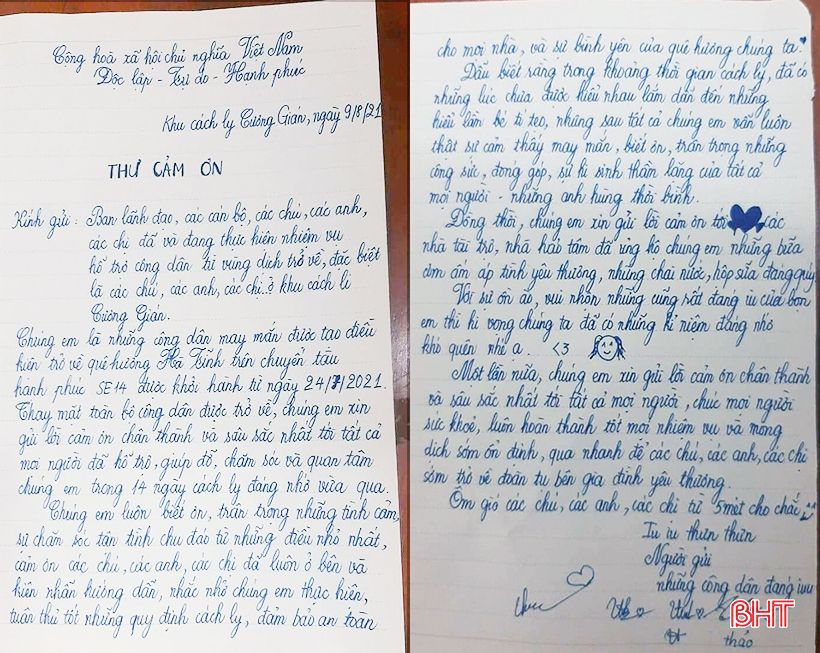 Cộng hoà xã hội chủ nghĩa Việt Nam
Độc lập - Tự do - Hạnh phúc
Khu cách ly Cương Gián, ngày 9/8/21
THƯ CẢM ƠN
Kính gửi: Ban lãnh đạo, các cán bộ, các chú, các anh,
các chị đã và đang thực hiện nhiệm vụ
hỗ trợ công dân từ vùng dịch trở về, đặc biệt
là các chú, các anh, các chị ở khu cách li
Cương Gián.
Chúng em là những công dân may mắn được tạo điều
kiện trở về quê hương Hà Tĩnh trên chuyến tàu
hạnh phúc SE14 được khởi hành từ ngày 24/7/2021.
Thay mặt toàn bộ công dân được trở về, chúng em xin
gửi lời cảm ơn chân thành và sâu sắc nhất tới tất cả
mọi người đã hỗ trợ, giúp đỡ, chăm sóc và quan tâm
chúng em trong 14 ngày cách ly đáng nhớ vừa qua.
Chúng em luôn biết ơn, trân trọng những tình cảm,
sự chăm sóc tận tình chu đáo từ những điều nhỏ nhất,
cảm ơn các chú, các anh, các chị đã luôn ở bên và
kiên nhẫn hướng dẫn, nhắc nhở chúng em thực hiện,
tuân thủ tốt những quy định cách ly, đảm bảo an toàn
cho mọi nhà, và sự bình yên của quê hương chúng ta.
Dẫu biết rằng trong khoảng thời gian cách ly, đã có
những lúc chưa được hiểu nhau lắm dẫn đến những
hiểu lầm bé tí tẹo, nhưng sau tất cả chúng em vẫn luôn
thật sự cảm thấy may mắn, biết ơn, trân trọng những
công sức, đóng góp, sự hi sinh thầm lặng của tất cả
mọi người - những anh hùng thời bình.
Đồng thời, chúng em xin gửi lời cảm ơn tới các
nhà tài trợ, nhà hảo tâm đã ủng hộ chúng em những bữa
cơm ấm áp tình yêu thương, những chai nước, hộp sữa đáng quý.
Với sự ồn ào, vui nhộn nhưng cũng rất đáng iu của bọn
em thì hi vọng chúng ta đã có những kỉ niệm đáng nhớ
khó quên nhé ạ. <3
Một lần nữa, chúng em xin gửi lời cảm ơn chân thành
và sâu sắc nhất tới tất cả mọi người, chúc mọi người
sức khoẻ, luôn hoàn thành tốt mọi nhiệm vụ và mong
dịch sớm ổn định, qua nhanh để các chú, các anh, các chị
sớm trở về đoàn tụ bên gia đình yêu thương.
Ôm gió các chú, các anh, các chị từ 5 mét cho chắc ^^
Iu iu thưn thưn
Người gửi
những công dân đáng iuu
thảo
BHT